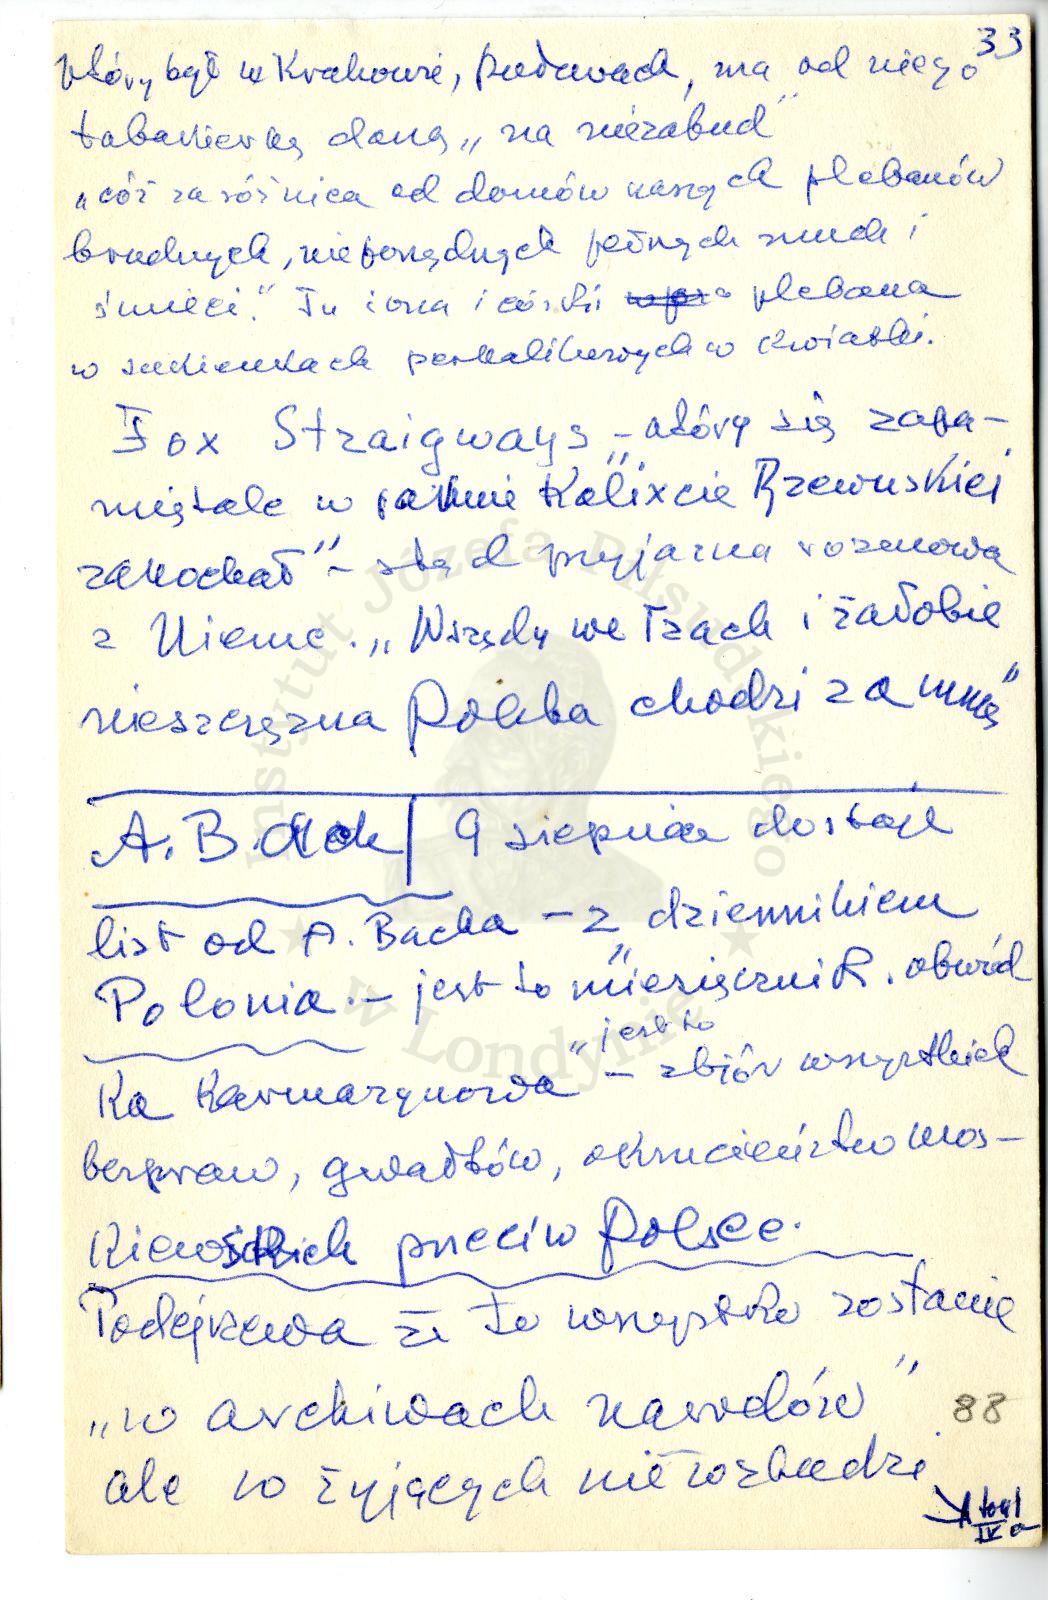 33
który był w Krakowie, Puławach, ma od niego
tabakierkę daną „na niezabud"
„cóż za różnica od domów naszych plebanów
brudnych, nieporządnych pełnych much i
śmieci." Tu żona i córki plebana
w sukienkach perkalikowych w kwiatki.
Fox Straigways – „który się zapa-
miętale w pannie Kalixcie Rzewuskiej
zakochał" – stąd przyjazna rozmowa
z Niemc. „Wszędy we łzach i żałobie
nieszczęzna Polska chodzi za mną"
A. Bach | 9 sierpnia dostaje
list od A. Bacha – z dziennikiem
Polonia – jest to „miesięcznik. obwód
jest to
ka Karmazynowa" – zbiór wszystkich
bezpraw, gwałtów, okrucieństw mos-
kiewskich przeciw Polsce.
Podejrzewa że to wszystko zostanie
„w archiwach narodów"
88
ale w żyjących nie rozbudzi
Instytut Józefa Piłsudskiego
w Londynie